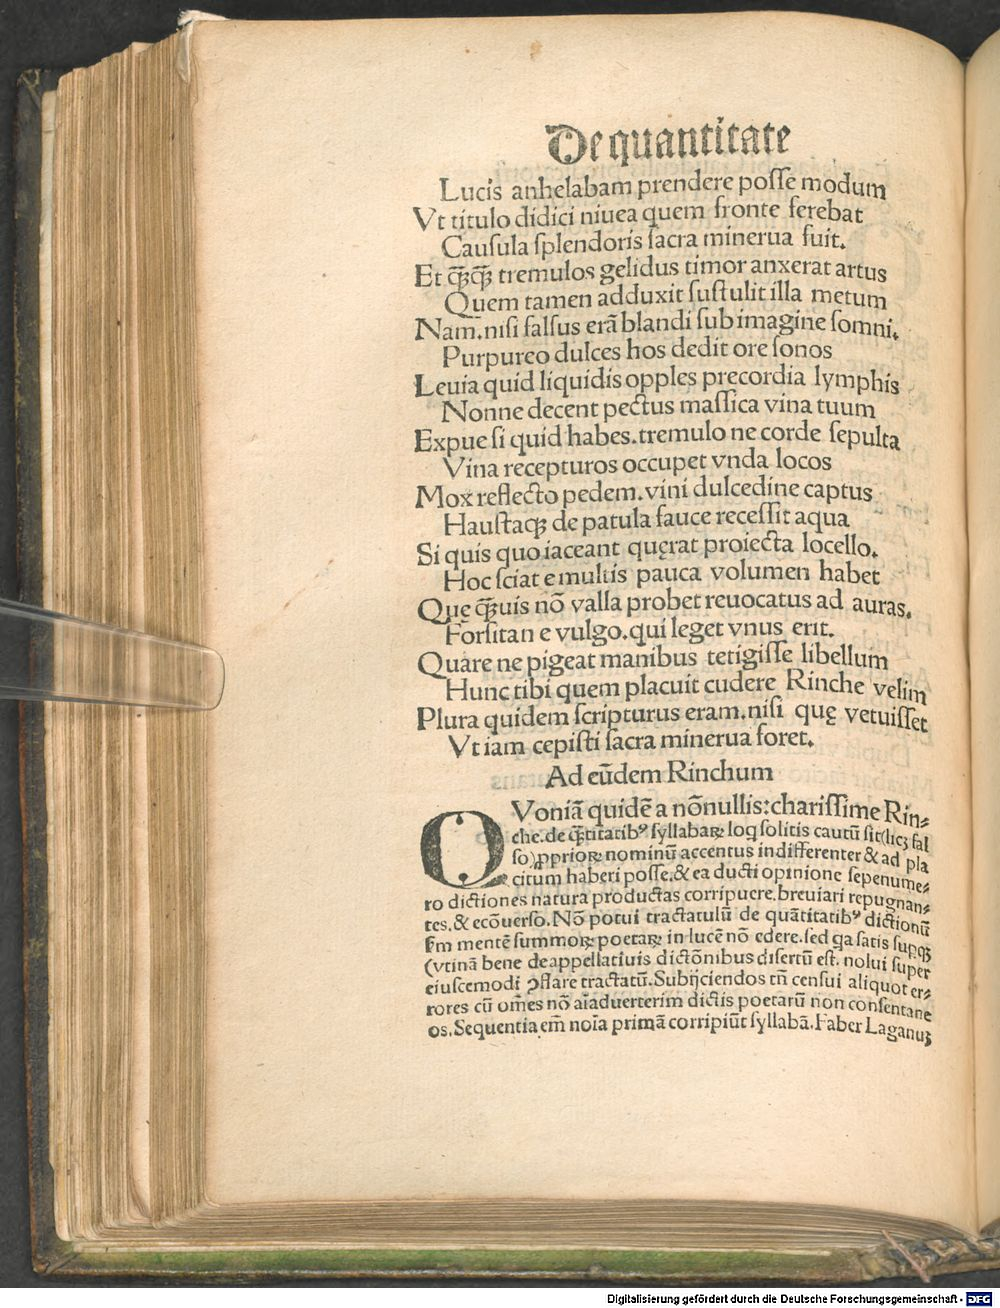 De quantitate
Lucis anhelabam prendere posse modum
Vt titulo didici niuea quem fronte ferebat
Causula splendoris sacra minerua fuit.
Et q̃ꝫq̃ꝫ tremulos gelidus timor anxerat artus
Quem tamen adduxit sustulit illa metum
Nam. nisi falsus erã blandi sub imagine somni.
Purpureo dulces hos dedit ore sonos
Leuia quid liquidis opples precordia lymphis
Nonne decent pectus massica vina tuum
Expue si quid habes. tremulo ne corde sepulta
Vina recepturos occupet vnda locos
Mox reflecto pedem. vini dulcedine captus
Haustaqꝫ de patula fauce recessit aqua
Si quis quo iaceant quęrat proiecta locello.
Hoc sciat e multis pauca volumen habet
Quę q̃ꝫuis nõ valla probet reuocatus ad auras.
Forsitan e vulgo. qui leget vnus erit.
Quare ne pigeat manibus tetigisse libellum
Hunc tibi quem placuit cudere Rinche velim
Plura quidem scripturus eram. nisi quę vetuisset
Vt iam cepisti sacra minerua foret.
Ad eũdem Rinchum
QVoniã quidẽ a nõnullis: charissime Rin⸗
che. de q̃ꝫtitatibꝰ syllabaꝝ loq̃ solitis cautũ sit (licꝫ fal
so) ꝓprioꝝ nominũ accentus indifferenter & ad pla
citum haberi posse. & ea ducti opinione sepenume⸗
ro dictiones natura productas corripuere. breuiari repugnan⸗
tes. & ecõuerso. Nõ potui tractatulũ de quãtitatibꝰ dictionũ
ẜm mentẽ summoꝝ poetaꝝ in lucẽ nõ edere. sed qa satis supqꝫ
(vtinã bene de appellatiuis dictõnibus disertũ est. nolui super
eiuscemodi ꝯflare tractatũ. Subijciendos tñ censui aliquot er⸗
rores cũ om̃es nõ aĩaduerterim dictis poetarũ non consentane
os. Sequentia em̃ noĩa primã corripiũt syllabã. Faber Laganuꝫ
Digitalisierung gefördert durch die Deutsche Forschungsgemeinschaft - DFG